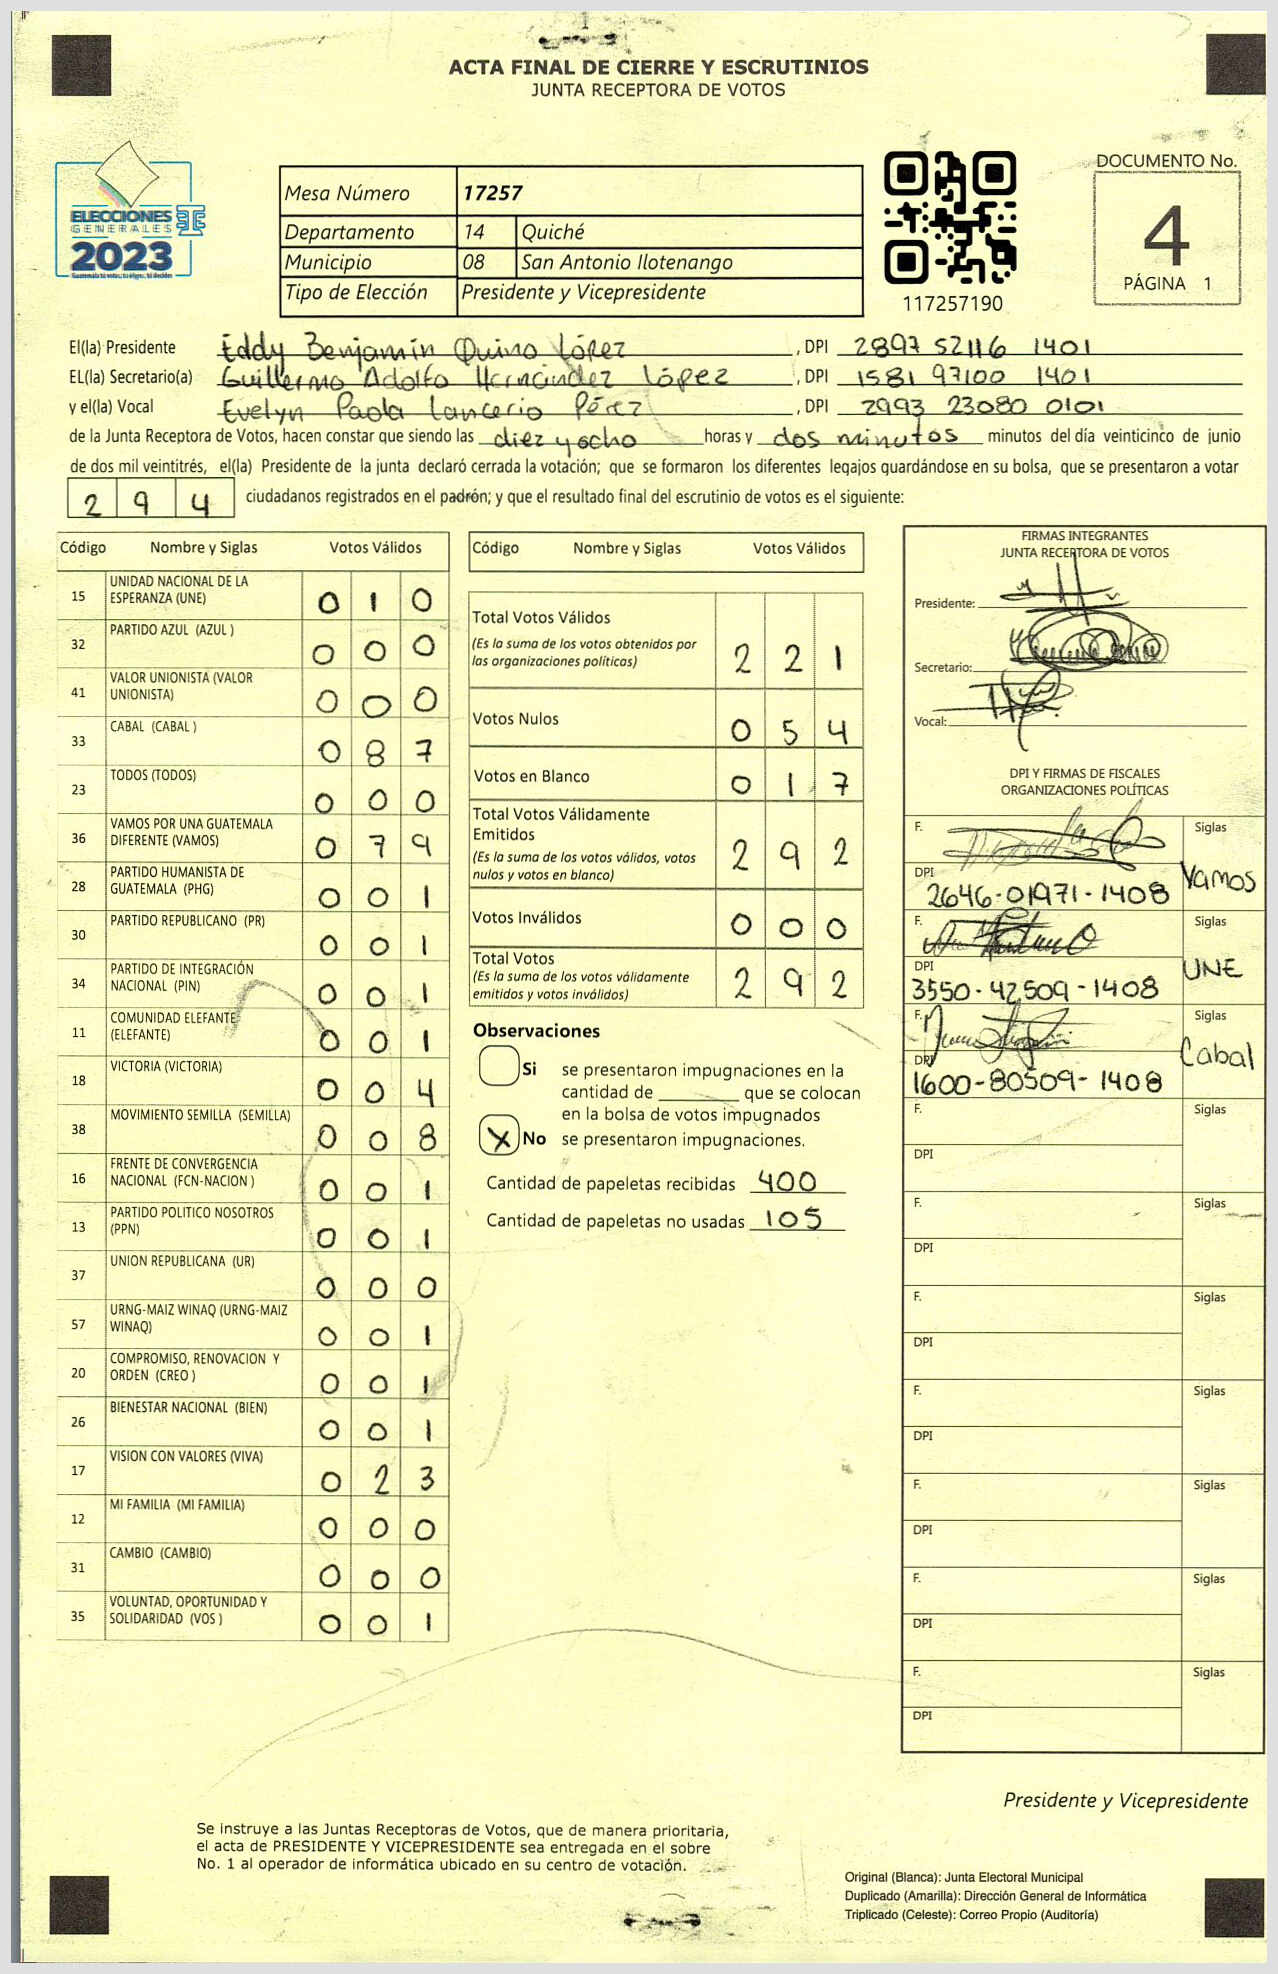 ACTA FINAL DE CIERRE Y ESCRUTINIOS
JUNTA RECEPTORA DE VOTOS
ELECCIONES
GENERALES
2023
Mesa Número 17257
Departamento 14 Quiché
Municipio 08 San Antonio Ilotenango
Tipo de Elección Presidente y Vicepresidente
117257190
DOCUMENTO No.
4
PÁGINA 1
El(la) Presidente Eddy Benjamín Quino López , DPI 2897 52116 1401
EL(la) Secretario(a) Guillermo Adolfo Hernández López , DPI 1581 97100 1401
y el(la) Vocal Evelyn Paola Lancerio Pérez , DPI 2993 23080 0101
de la Junta Receptora de Votos, hacen constar que siendo las diez y ocho horas y dos minutos minutos del día veinticinco de junio
de dos mil veintitrés, el(la) Presidente de la junta declaró cerrada la votación; que se formaron los diferentes legajos guardándose en su bolsa, que se presentaron a votar
294 ciudadanos registrados en el padrón; y que el resultado final del escrutinio de votos es el siguiente:
Código Nombre y Siglas Votos Válidos
15 UNIDAD NACIONAL DE LA ESPERANZA (UNE) 0 1 0
32 PARTIDO AZUL (AZUL ) 0 0 0
41 VALOR UNIONISTA (VALOR UNIONISTA) 0 0 0
33 CABAL (CABAL ) 0 8 7
23 TODOS (TODOS) 0 0 0
36 VAMOS POR UNA GUATEMALA DIFERENTE (VAMOS) 0 7 9
28 PARTIDO HUMANISTA DE GUATEMALA (PHG) 0 0 1
30 PARTIDO REPUBLICANO (PR) 0 0 1
34 PARTIDO DE INTEGRACIÓN NACIONAL (PIN) 0 0 1
11 COMUNIDAD ELEFANTE (ELEFANTE) 0 0 1
18 VICTORIA (VICTORIA) 0 0 4
38 MOVIMIENTO SEMILLA (SEMILLA) 0 0 8
16 FRENTE DE CONVERGENCIA NACIONAL (FCN-NACION ) 0 0 1
13 PARTIDO POLITICO NOSOTROS (PPN) 0 0 1
37 UNION REPUBLICANA (UR) 0 0 0
57 URNG-MAIZ WINAQ (URNG-MAIZ WINAQ) 0 0 1
20 COMPROMISO, RENOVACION Y ORDEN (CREO ) 0 0 1
26 BIENESTAR NACIONAL (BIEN) 0 0 1
17 VISION CON VALORES (VIVA) 0 2 3
12 MI FAMILIA (MI FAMILIA) 0 0 0
31 CAMBIO (CAMBIO) 0 0 0
35 VOLUNTAD, OPORTUNIDAD Y SOLIDARIDAD (VOS ) 0 0 1
Código Nombre y Siglas Votos Válidos
Total Votos Válidos
(Es la suma de los votos obtenidos por
las organizaciones políticas) 2 2 1
Votos Nulos 0 5 4
Votos en Blanco 0 1 7
Total Votos Válidamente
Emitidos
(Es la suma de los votos válidos, votos
nulos y votos en blanco) 2 9 2
Votos Inválidos 0 0 0
Total Votos
(Es la suma de los votos válidamente
emitidos y votos inválidos) 2 9 2
Observaciones
Si se presentaron impugnaciones en la
cantidad de ________ que se colocan
en la bolsa de votos impugnados
X No se presentaron impugnaciones.
Cantidad de papeletas recibidas 400
Cantidad de papeletas no usadas 105
FIRMAS INTEGRANTES
JUNTA RECEPTORA DE VOTOS
Presidente:
Secretario:
Vocal:
DPI Y FIRMAS DE FISCALES
ORGANIZACIONES POLÍTICAS
F. Siglas
DPI 2646-01971-1408 Vamos
F. Siglas
DPI 3550-42509-1408 UNE
F. Siglas
DPI 1600-80509-1408 Cabal
F. Siglas
DPI
F. Siglas
DPI
F. Siglas
DPI
F. Siglas
DPI
F. Siglas
DPI
F. Siglas
DPI
F. Siglas
DPI
Presidente y Vicepresidente
Se instruye a las Juntas Receptoras de Votos, que de manera prioritaria,
el acta de PRESIDENTE Y VICEPRESIDENTE sea entregada en el sobre
No. 1 al operador de informática ubicado en su centro de votación.
Original (Blanca): Junta Electoral Municipal
Duplicado (Amarilla): Dirección General de Informática
Triplicado (Celeste): Correo Propio (Auditoría)